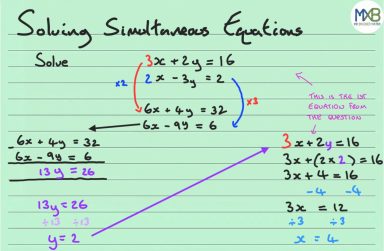 Solving Simultaneous Equations
MXB
Solve
3x + 2y = 16
2x - 3y = 2
x2
x3
6x + 4y = 32
6x - 9y = 6
- 6x + 4y = 32
6x - 9y = 6
13y = 26
13y = 26
÷13 ÷13
y = 2
THIS IS THE 1ST
EQUATION FROM
THE QUESTION
3x + 2y = 16
3x + (2x2) = 16
3x + 4 = 16
-4 -4
3x = 12
÷3 ÷3
x = 4